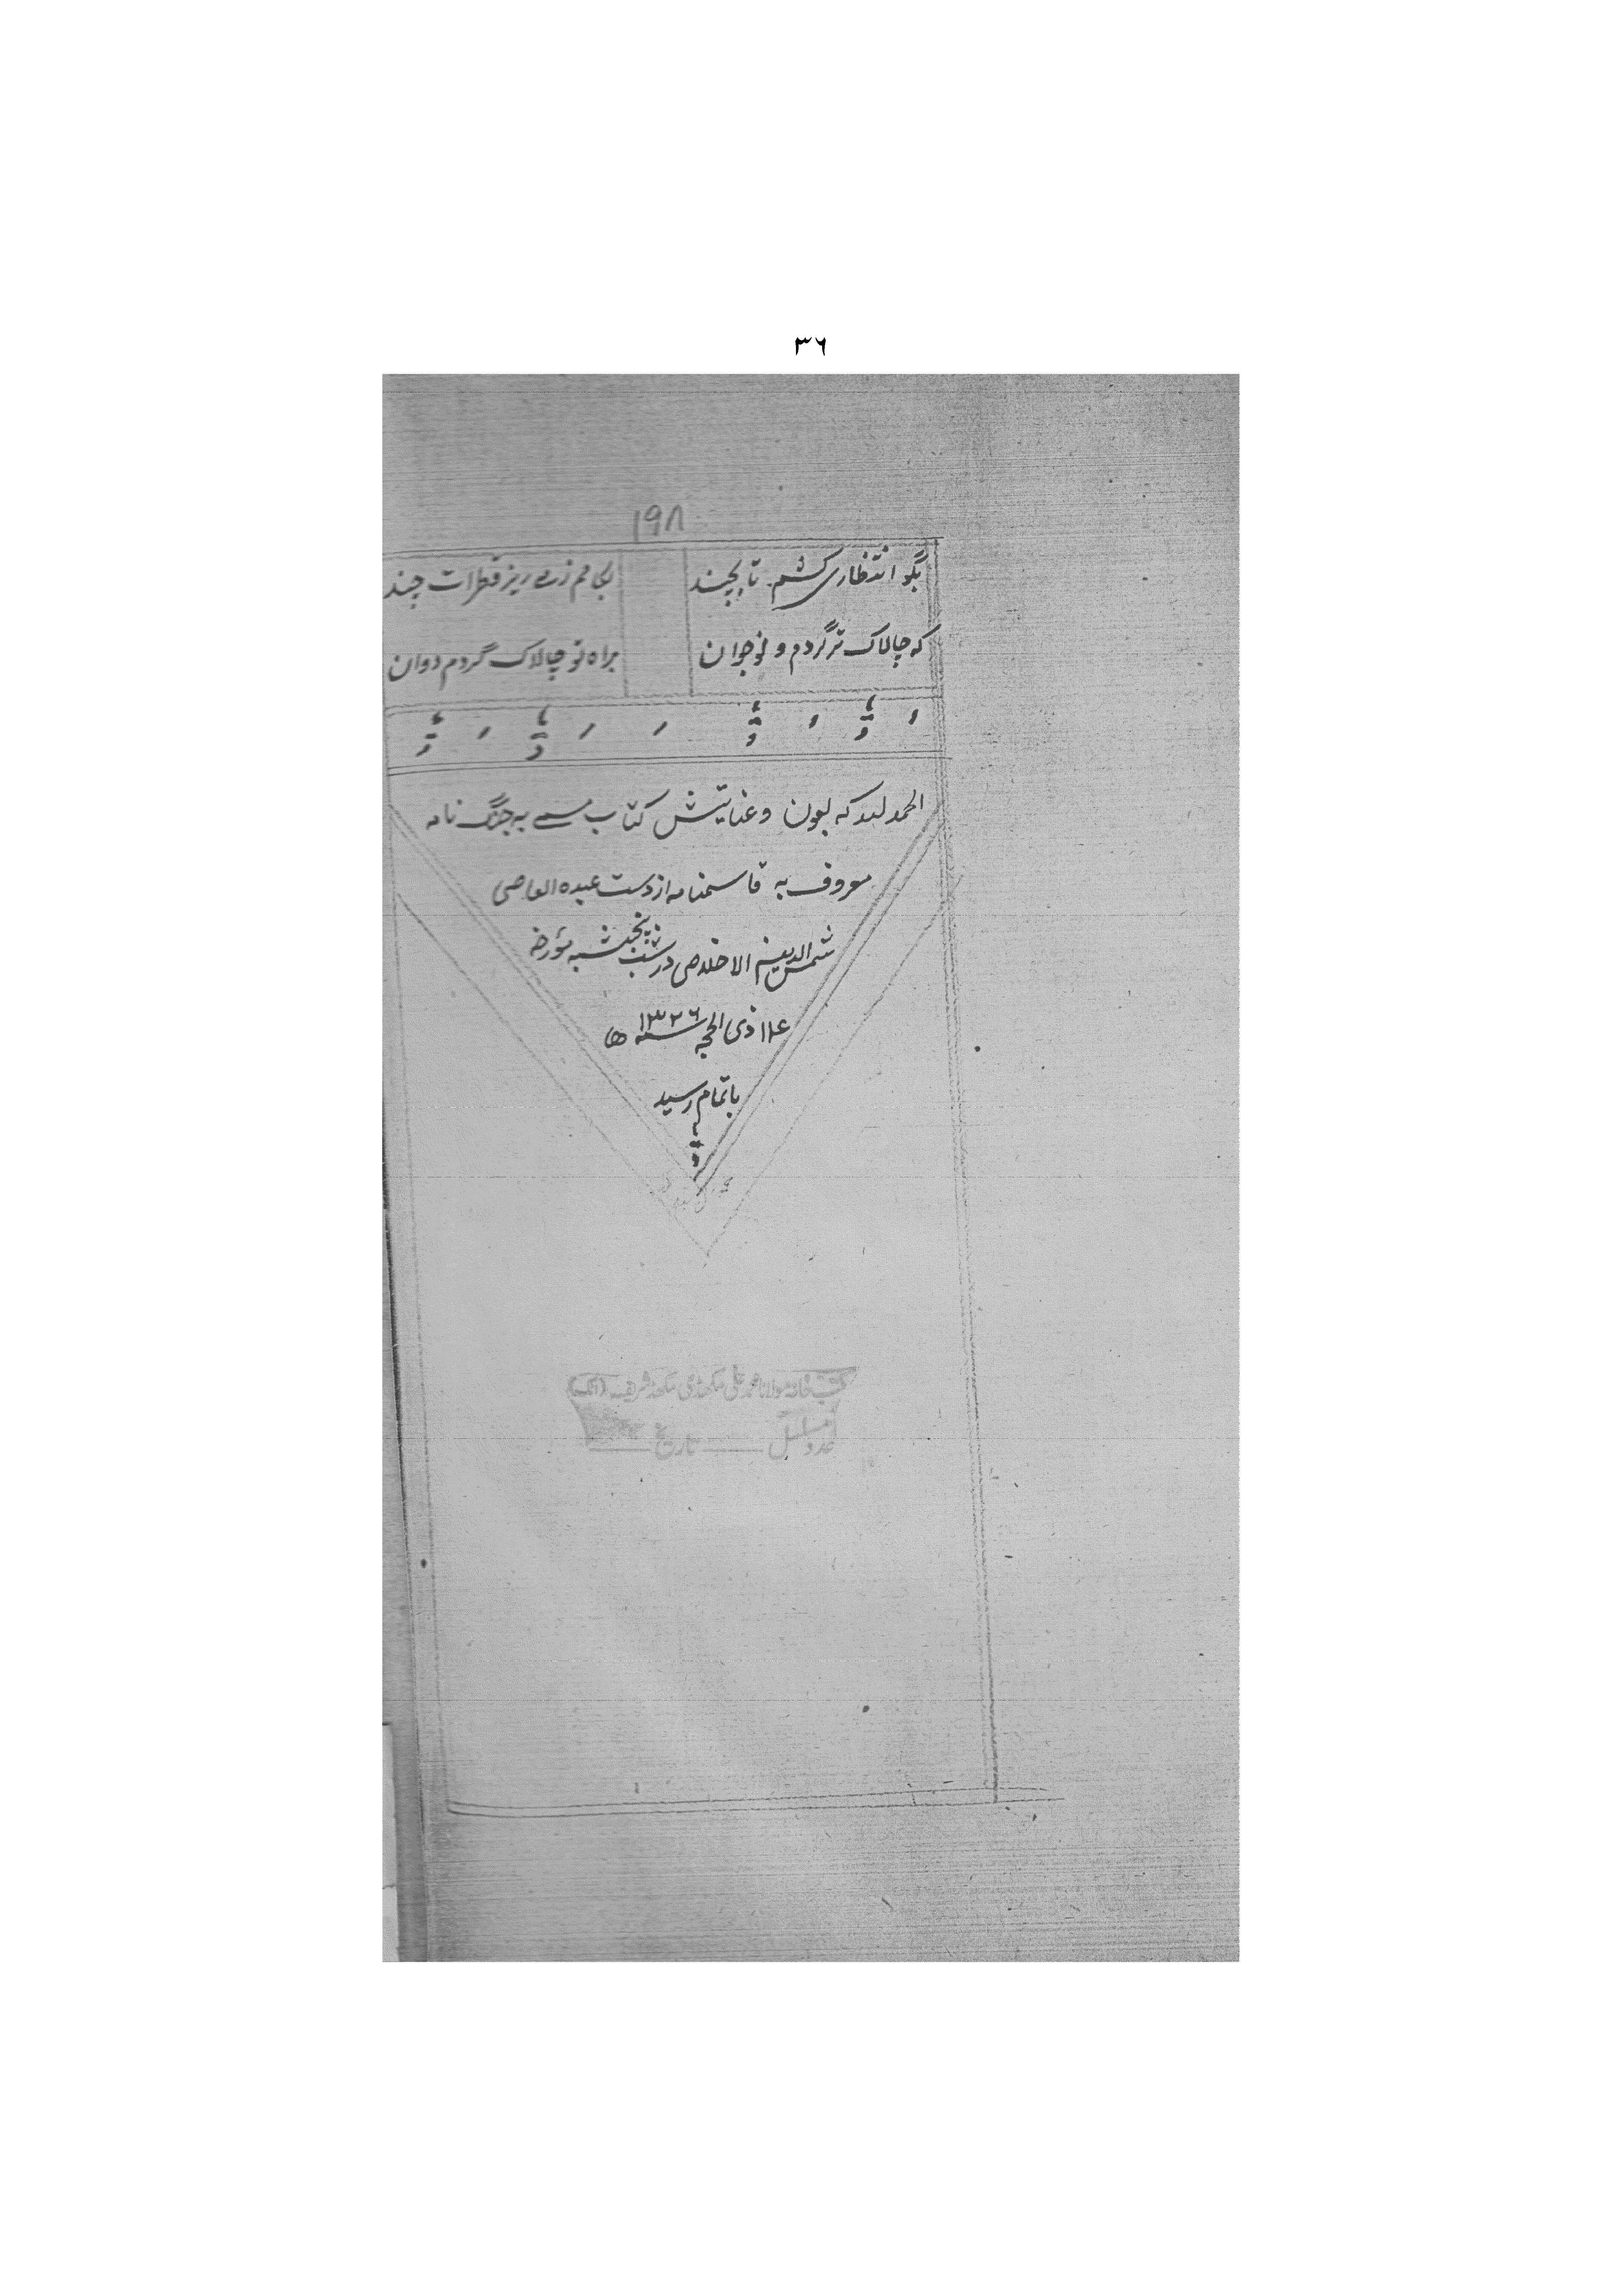 ۳۶
۱۹۸
بگو انتظاری کشم تا بچند بجامم زمے ریز قطرات چند
که چالاک تر گردم و نوجوان براه تو چالاک گردم دوان
الحمد لله که بعون و عنایتش کتاب مسمے به جنگ نامه
معروف به قاسمنامه از دست عبده العاصی
شمس الدین الاخلاصی در شب پنجشنبه مورخه
ذی الحجه سنه ۱۳۲۶ ھ
باتمام رسید
کتب خانہ مولانا محمد علی مکھڈی مکھڈ شریف (اٹک)
عدد مسلسل ـــــ تاریخ ـــــ